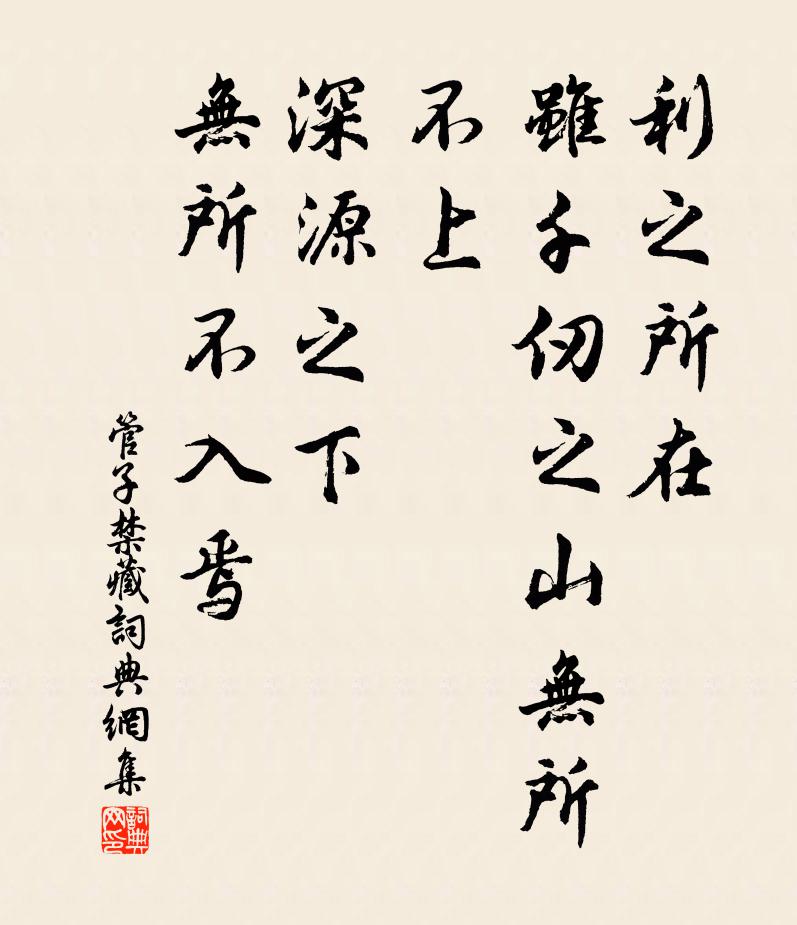 利之所在
雖千仞之山無所
不上
深源之下
無所不入焉
管子禁藏詞典網集
詞典网印